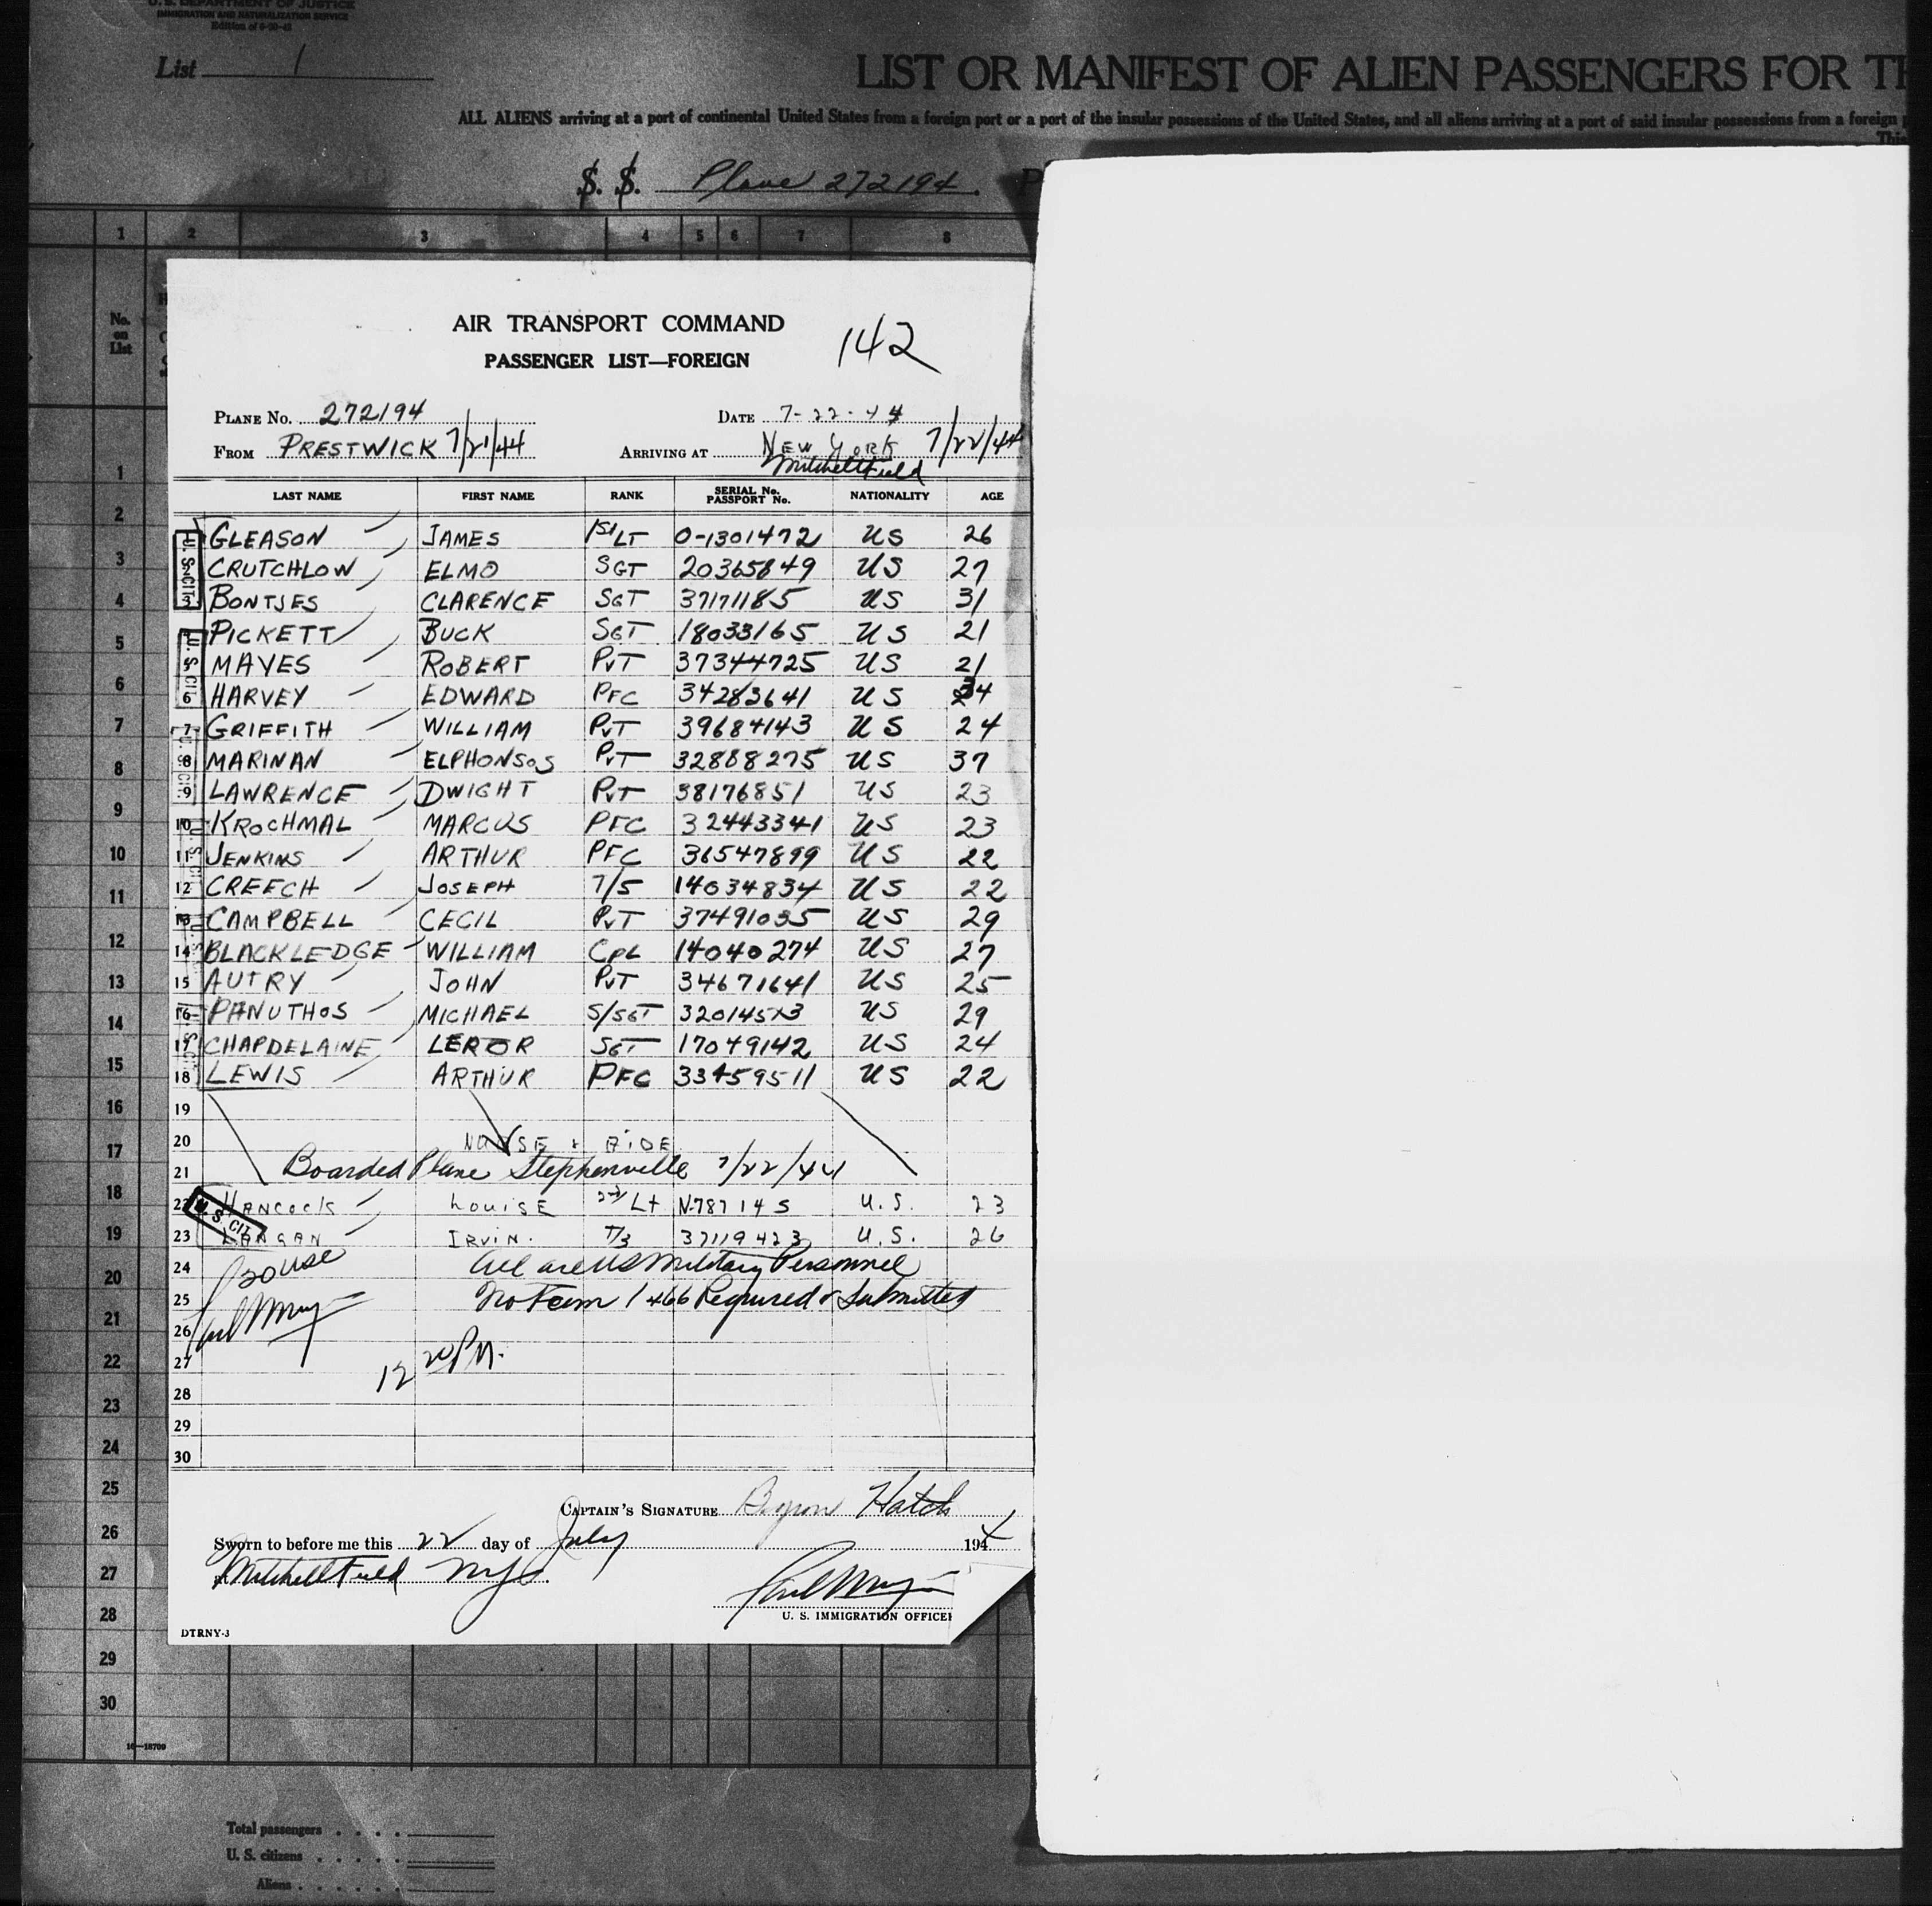 U. S. DEPARTMENT OF JUSTICE
IMMIGRATION AND NATURALIZATION SERVICE
Edition of 6-20-42
List 1
LIST OR MANIFEST OF ALIEN PASSENGERS FOR TH
ALL ALIENS arriving at a port of continental United States from a foreign port or a port of the insular possessions of the United States, and all aliens arriving at a port of said insular possessions from a foreign p
This
S. S. Plane 272194
1 2 3 4 5 6 7 8
No. on List
AIR TRANSPORT COMMAND
142
PASSENGER LIST—FOREIGN
PLANE No. 272194 DATE 7-22-44
FROM PRESTWICK 7/21/44 ARRIVING AT NEW YORK 7/22/44
Mitchell Field
LAST NAME FIRST NAME RANK SERIAL No. PASSPORT No. NATIONALITY AGE
GLEASON JAMES 1st LT 0-1301472 US 26
CRUTCHLOW ELMO SGT 20365849 US 27
3 BONTJES CLARENCE SGT 37171185 US 31
PICKETT BUCK SGT 18033165 US 21
MAYES ROBERT PVT 37344725 US 21
6 HARVEY EDWARD PFC 34283641 US 34
7 GRIFFITH WILLIAM PVT 39684143 US 24
8 MARINAN ELPHONSOS PVT 32888275 US 37
9 LAWRENCE DWIGHT PVT 38176851 US 23
10 KROCHMAL MARCUS PFC 32443341 US 23
11 JENKINS ARTHUR PFC 36547899 US 22
12 CREECH JOSEPH T/5 14034834 US 22
13 CAMPBELL CECIL PVT 37491035 US 29
14 BLACKLEDGE WILLIAM CPL 14040274 US 27
15 AUTRY JOHN PVT 34671641 US 25
16 PANUTHOS MICHAEL S/SGT 32014573 US 29
17 CHAPDELAINE LEROR SGT 17049142 US 24
18 LEWIS ARTHUR PFC 33459511 US 22
19
20 NURSE & AIDE
21 Boarded Plane Stephenville 7/22/44
22 HANCOCK LOUISE 2nd Lt N-787145 U.S. 23
23 LANGAN IRVIN. T/3 37119423 U.S. 26
24 All are US Military Personnel
25 No Form 1466 Required or Submitted
26
27 12 20 PM.
28
29
30
U. S. CIT.
U. S. CIT.
U. S. CIT.
U. S. CIT.
U. S. CIT.
U. S. CIT.
CAPTAIN'S SIGNATURE Byron Hatch
Sworn to before me this 22 day of July 1944
at Mitchell Field NY
U. S. IMMIGRATION OFFICER
DTRNY-3
1
2
3
4
5
6
7
8
9
10
11
12
13
14
15
16
17
18
19
20
21
22
23
24
25
26
27
28
29
30
16—18709
Total passengers
U. S. citizens
Aliens